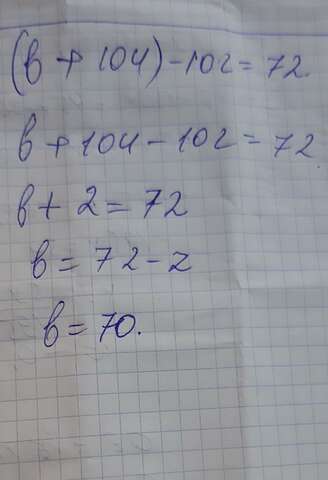 (в + 104) - 102 = 72.
в + 104 - 102 = 72
в + 2 = 72
в = 72 - 2
в = 70.